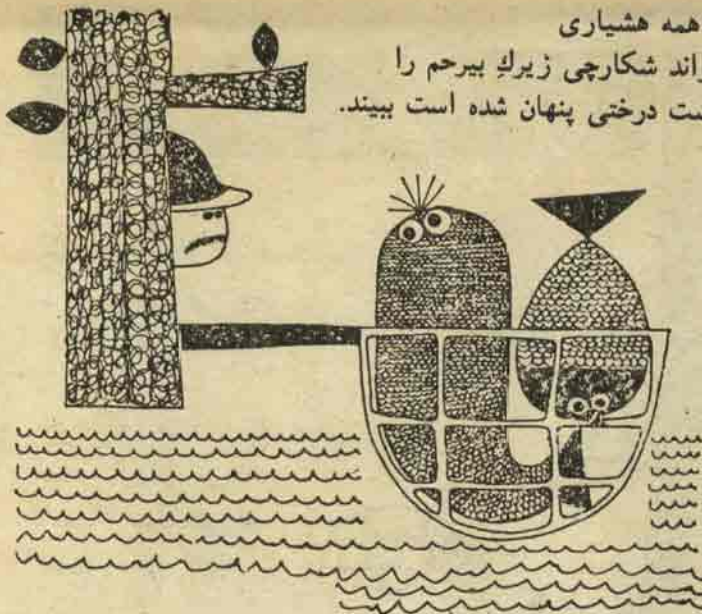 همه هشیاری
راند شکارچی زیركِ بیرحم را
ست درختی پنهان شده است ببیند.